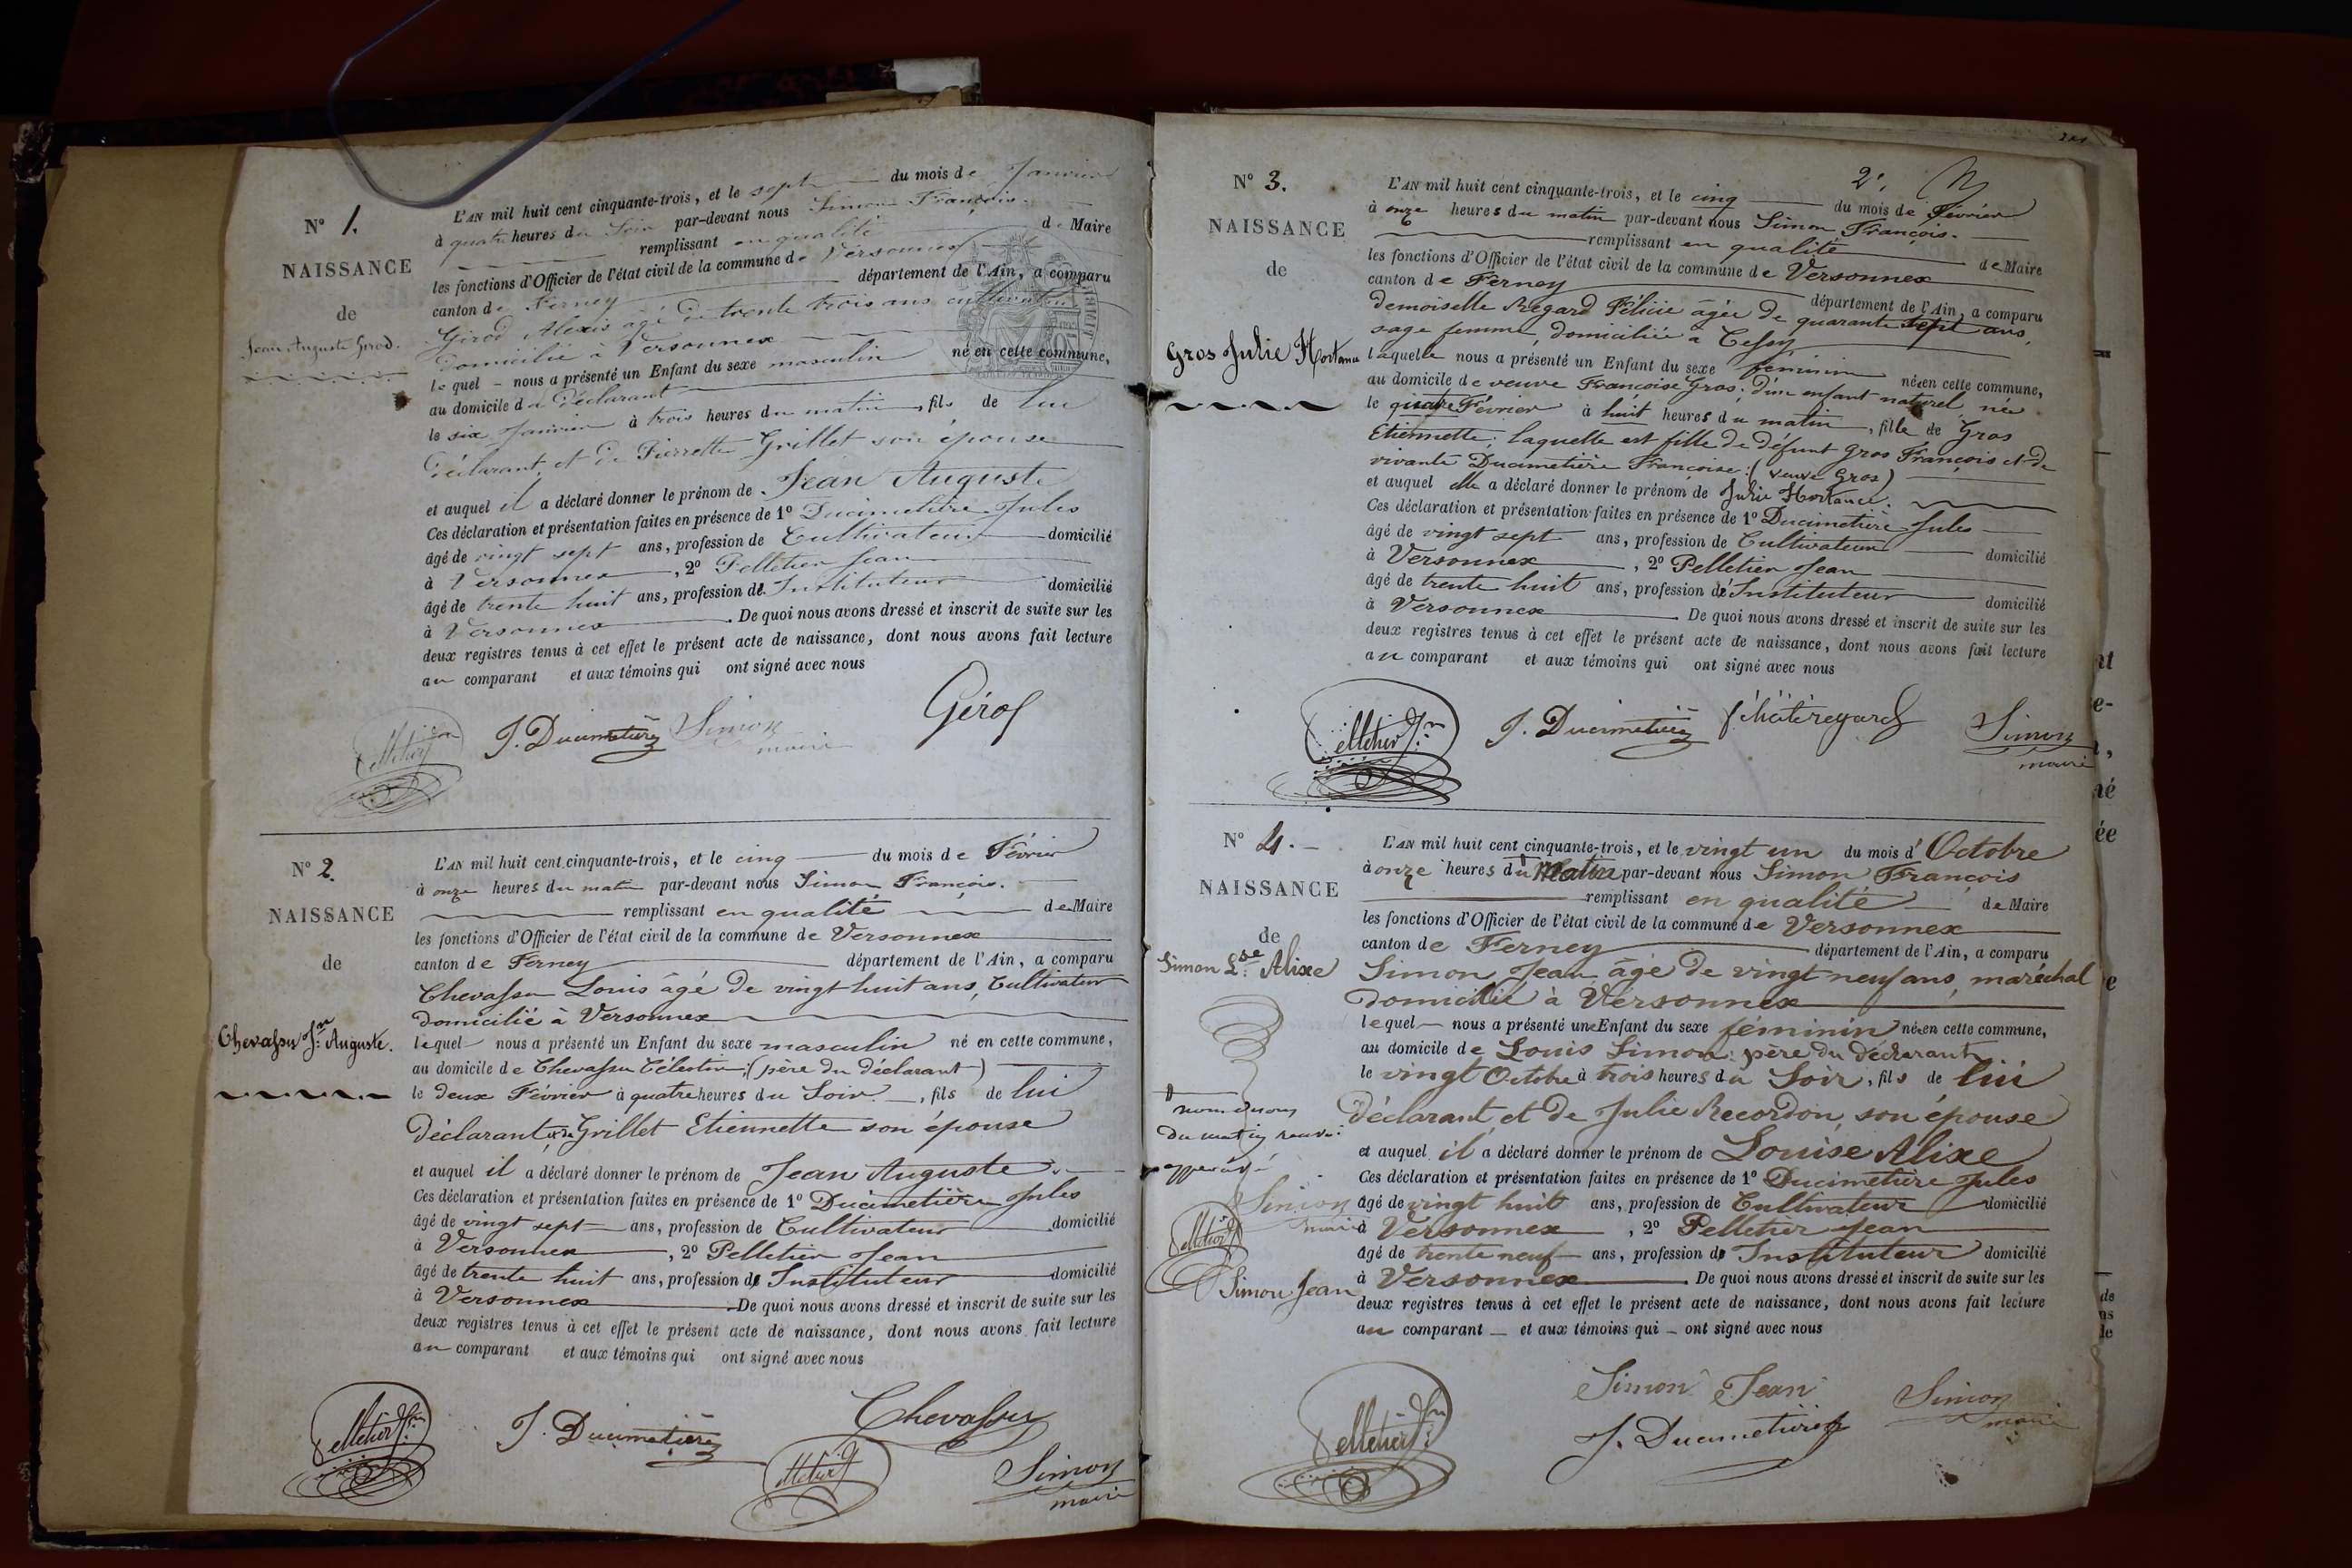 N° 1.
NAISSANCE
de
Jean Auguste Gerod.
L'AN mil huit cent cinquante-trois, et le sept du mois de Janvier
à quatre heures du Soir par-devant nous Simon François.
remplissant en qualité de Maire
les fonctions d'Officier de l'état civil de la commune de Versonnex
canton de Ferney département de l'Ain, a comparu
Girod Alexis âgé de trente trois ans cultivateur
domicilié à Versonnex
lequel nous a présenté un Enfant du sexe masculin né en cette commune,
au domicile du déclarant
le six Janvier à trois heures du matin, fils de lui
déclarant, et de Pierrette Grillet son épouse
et auquel il a déclaré donner le prénom de Jean Auguste
Ces déclaration et présentation faites en présence de 1° Ducimetière Jules
âgé de vingt sept ans, profession de Cultivateur domicilié
à Versonnex, 2° Pelletier Jean
âgé de trente huit ans, profession d'Instituteur domicilié
à Versonnex. De quoi nous avons dressé et inscrit de suite sur les
deux registres tenus à cet effet le présent acte de naissance, dont nous avons fait lecture
au comparant et aux témoins qui ont signé avec nous
Pelletier Jn J. Ducimetière Simon maire Gérod
N° 2.
NAISSANCE
de
Chevassu Jn. Auguste.
L'AN mil huit cent cinquante-trois, et le cinq du mois de Février
à onze heures du matin par-devant nous Simon François.
remplissant en qualité de Maire
les fonctions d'Officier de l'état civil de la commune de Versonnex
canton de Ferney département de l'Ain, a comparu
Chevassu Louis âgé de vingt huit ans, Cultivateur
domicilié à Versonnex
lequel nous a présenté un Enfant du sexe masculin né en cette commune,
au domicile de Chevassu Célestin; (père du déclarant)
le deux Février à quatre heures du Soir, fils de lui
déclarant, et de Grillet Etiennette son épouse
et auquel il a déclaré donner le prénom de Jean Auguste
Ces déclaration et présentation faites en présence de 1° Ducimetière Jules
âgé de vingt sept ans, profession de Cultivateur domicilié
à Versonnex, 2° Pelletier Jean
âgé de trente huit ans, profession d'Instituteur domicilié
à Versonnex. De quoi nous avons dressé et inscrit de suite sur les
deux registres tenus à cet effet le présent acte de naissance, dont nous avons fait lecture
au comparant et aux témoins qui ont signé avec nous
Pelletier Jn J. Ducimetière Chevassu
Simon
maire
2.
N° 3.
NAISSANCE
de
Gros Julie Hortance
L'AN mil huit cent cinquante-trois, et le cinq du mois de Février
à onze heures du matin par-devant nous Simon François.
remplissant en qualité de Maire
les fonctions d'Officier de l'état civil de la commune de Versonnex
canton de Ferney département de l'Ain, a comparu
demoiselle Regard Félicie âgée de quarante sept ans,
sage femme, domiciliée à Cessy
laquelle nous a présenté un Enfant du sexe féminin née en cette commune,
au domicile de veuve Françoise Gros; d'un enfant naturel, née
le quatre Février à huit heures du matin, fille de Gros
Etiennette; laquelle est fille de défunt Gros François et de
vivante Ducimetière Françoise: (veuve Gros)
et auquel elle a déclaré donner le prénom de Julie Hortance.
Ces déclaration et présentation faites en présence de 1° Ducimetière Jules
âgé de vingt sept ans, profession de Cultivateur domicilié
à Versonnex, 2° Pelletier Jean
âgé de trente huit ans, profession d'Instituteur domicilié
à Versonnex. De quoi nous avons dressé et inscrit de suite sur les
deux registres tenus à cet effet le présent acte de naissance, dont nous avons fait lecture
au comparant et aux témoins qui ont signé avec nous
Pelletier Jn J. Ducimetière félicité regard Simon
maire
N° 4.
NAISSANCE
de
Simon Lse. Alixe
L'AN mil huit cent cinquante-trois, et le vingt un du mois d'Octobre
à onze heures du Matin par-devant nous Simon François
remplissant en qualité de Maire
les fonctions d'Officier de l'état civil de la commune de Versonnex
canton de Ferney département de l'Ain, a comparu
Simon Jean âgé de vingt neuf ans, maréchal
domicilié à Versonnex
lequel nous a présenté une Enfant du sexe féminin née en cette commune,
au domicile de Louis Simon: père du déclarant
le vingt Octobre à trois heures du Soir, fils de lui
déclarant, et de Julie Recordon, son épouse
et auquel il a déclaré donner le prénom de Louise Alixe
Ces déclaration et présentation faites en présence de 1° Ducimetière Jules
âgé de vingt huit ans, profession de Cultivateur domicilié
à Versonnex, 2° Pelletier Jean
âgé de trente neuf ans, profession d'Instituteur domicilié
à Versonnex. De quoi nous avons dressé et inscrit de suite sur les
deux registres tenus à cet effet le présent acte de naissance, dont nous avons fait lecture
au comparant et aux témoins qui ont signé avec nous
du matin
approuvé
Simon
maire
Pelletier
Simon Jean
Pelletier Jn Simon Jean Simon
maire
J. Ducimetière